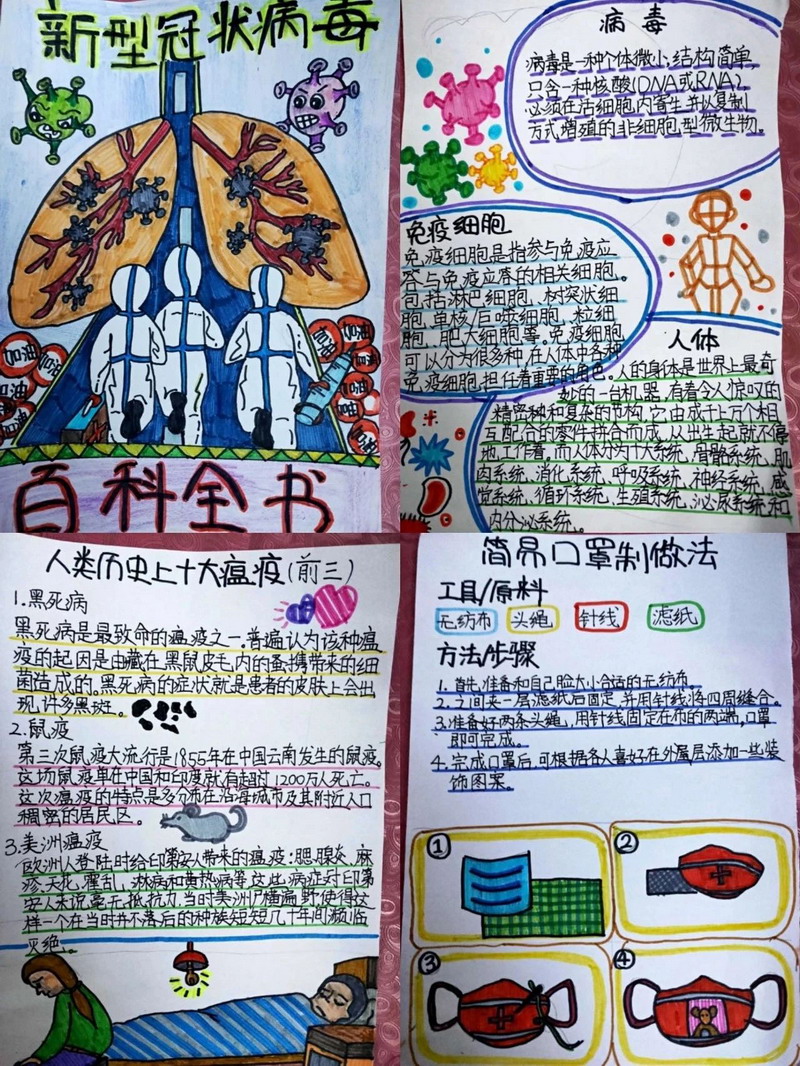 新型冠状病毒
加油
加油
加油
加油
加油
加油
加油
加油
百科全书
病毒
病毒是一种个体微小,结构简单,
只含一种核酸(DNA或RNA),
必须在活细胞内寄生并以复制
方式增殖的非细胞型微生物。
免疫细胞
免疫细胞是指参与免疫应
答与免疫应答的相关细胞。
包括淋巴细胞、树突状细
胞、单核/巨噬细胞、粒细
胞、肥大细胞等。免疫细胞
可以分为很多种,在人体中各种
免疫细胞担任着重要的角色。
人体
人的身体是世界上最奇
妙的一台机器,有着令人惊叹的
精密种和复杂的节构,它由成千上万个相
互配合的零件拼合而成,从出生起就不停
地工作着。而人体分为十大系统,骨骼系统、肌
肉系统、消化系统、呼吸系统、神经系统、感
觉系统、循环系统、生殖系统、泌尿系统和
内分泌系统。
人类历史上十大瘟疫(前三)
1.黑死病
黑死病是最致命的瘟疫之一。普遍认为该种瘟
疫的起因是由藏在黑鼠皮毛内的蚤携带来的细
菌造成的。黑死病的症状就是患者的皮肤上会出
现许多黑斑。
2.鼠疫
第三次鼠疫大流行是1855年在中国云南发生的鼠疫。
这场鼠疫单在中国和印度就有超过1200万人死亡。
这次瘟疫的特点是多分布在沿海城市及其附近人口
稠密的居民区。
3.美洲瘟疫
欧洲人登陆时给印第安人带来的瘟疫:腮腺炎、麻
疹、天花、霍乱、淋病和黄热病等,这此病症对印第
安人来说毫无抵抗力,当时美洲尸横遍野,使得这
样一个在当时并不落后的种族短短几十年间濒临
灭绝。
简易口罩制做法
工具/原料
无纺布 头绳 针线 滤纸
方法/步骤
1.首先,准备和自己脸大小合适的无纺布。
2.之间夹一层滤纸后固定,并用针线将四周缝合。
3.准备好两条头绳,用针线固定在布的两端,口罩
即可完成。
4.完成口罩后,可根据各人喜好在外层添加一些装
饰图案。
①
②
③
④